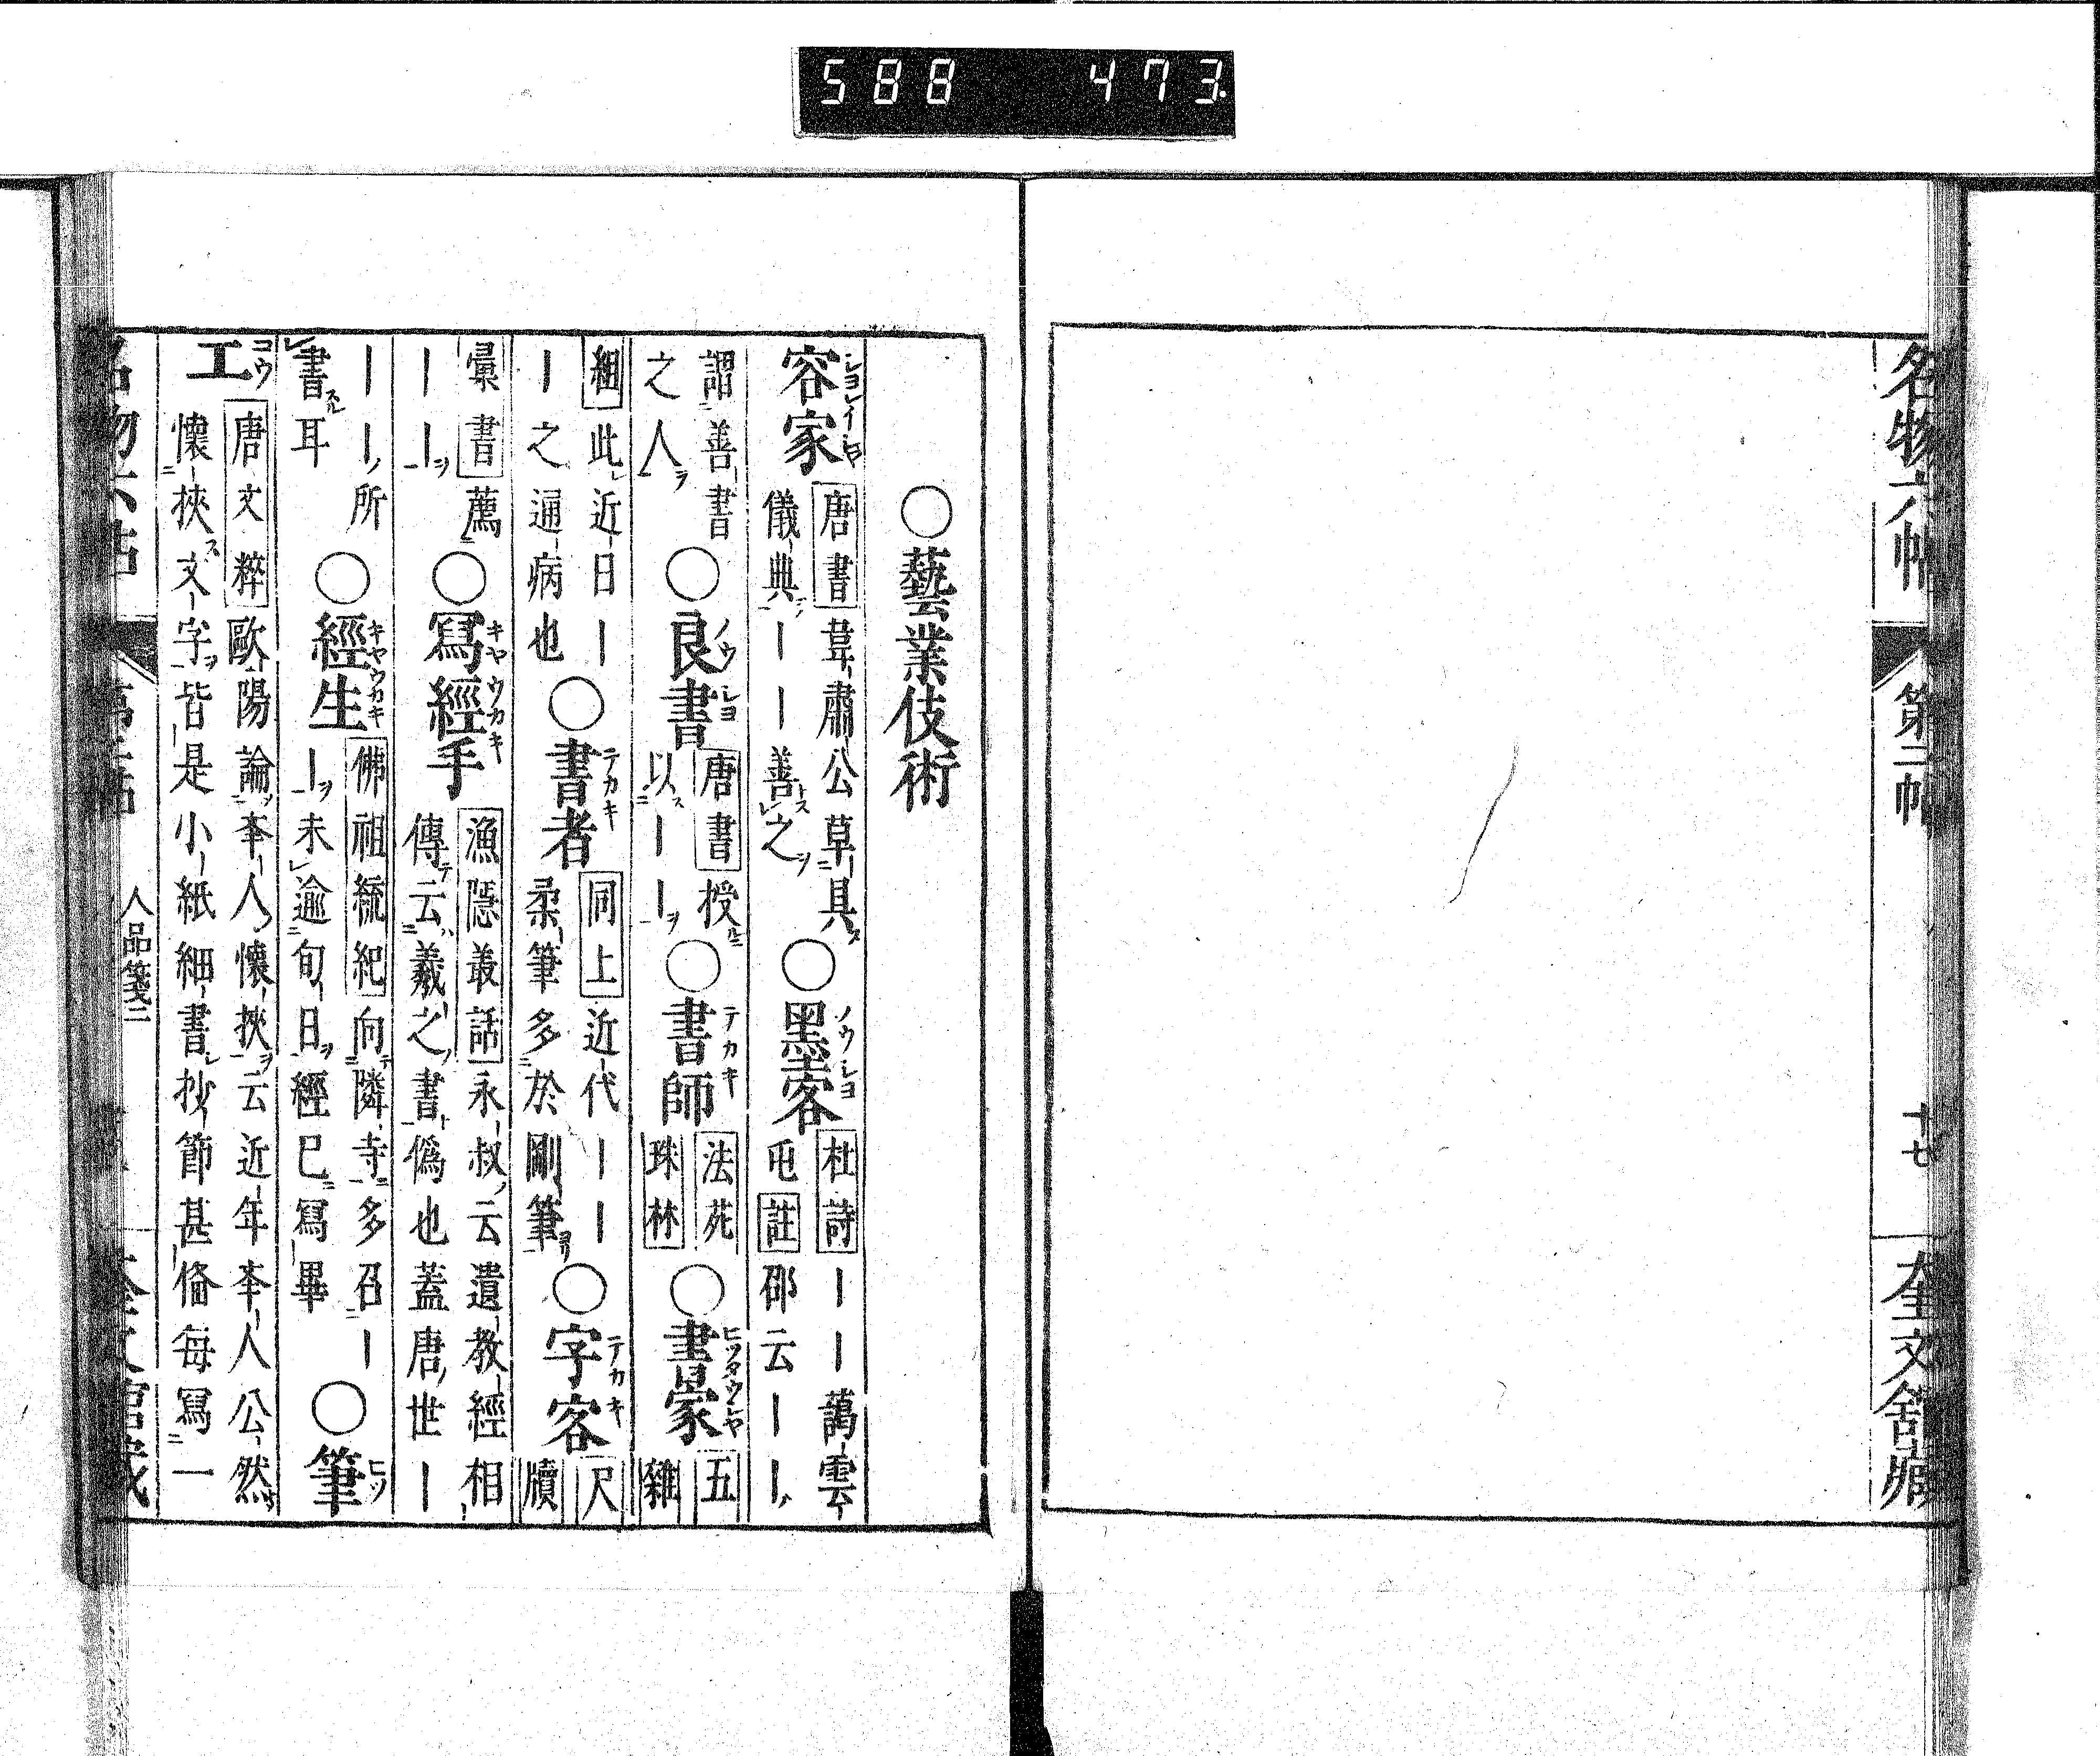 588 473
名物六帖 第二帖 十七 奎文舘藏
○藝業伎術
容家 唐書 韋肅公草具儀典｜｜善之 ○墨客 杜詩 ｜｜藹雲屯 註 邵云｜｜
謂善書之人 ○良書 唐書 授以｜｜ ○書師 法苑珠林 ○書家 五雜
組 此近日｜｜之通病也 ○書者 同上 近代｜｜柔筆多於剛筆 ○字客 尺牘
彙書 薦｜｜ ○寫經手 漁隱叢話 永叔云遺教經相傳云羲之書僞也蓋唐世｜
｜｜所書耳 ○經生 佛祖統紀 向隣寺多召｜｜未逾旬日經已寫畢 ○筆
工 唐文粹 歐陽論举人懷挾云近年举人公然懷挾文字皆是小紙細書抄節甚俻每寫一
人品箋二